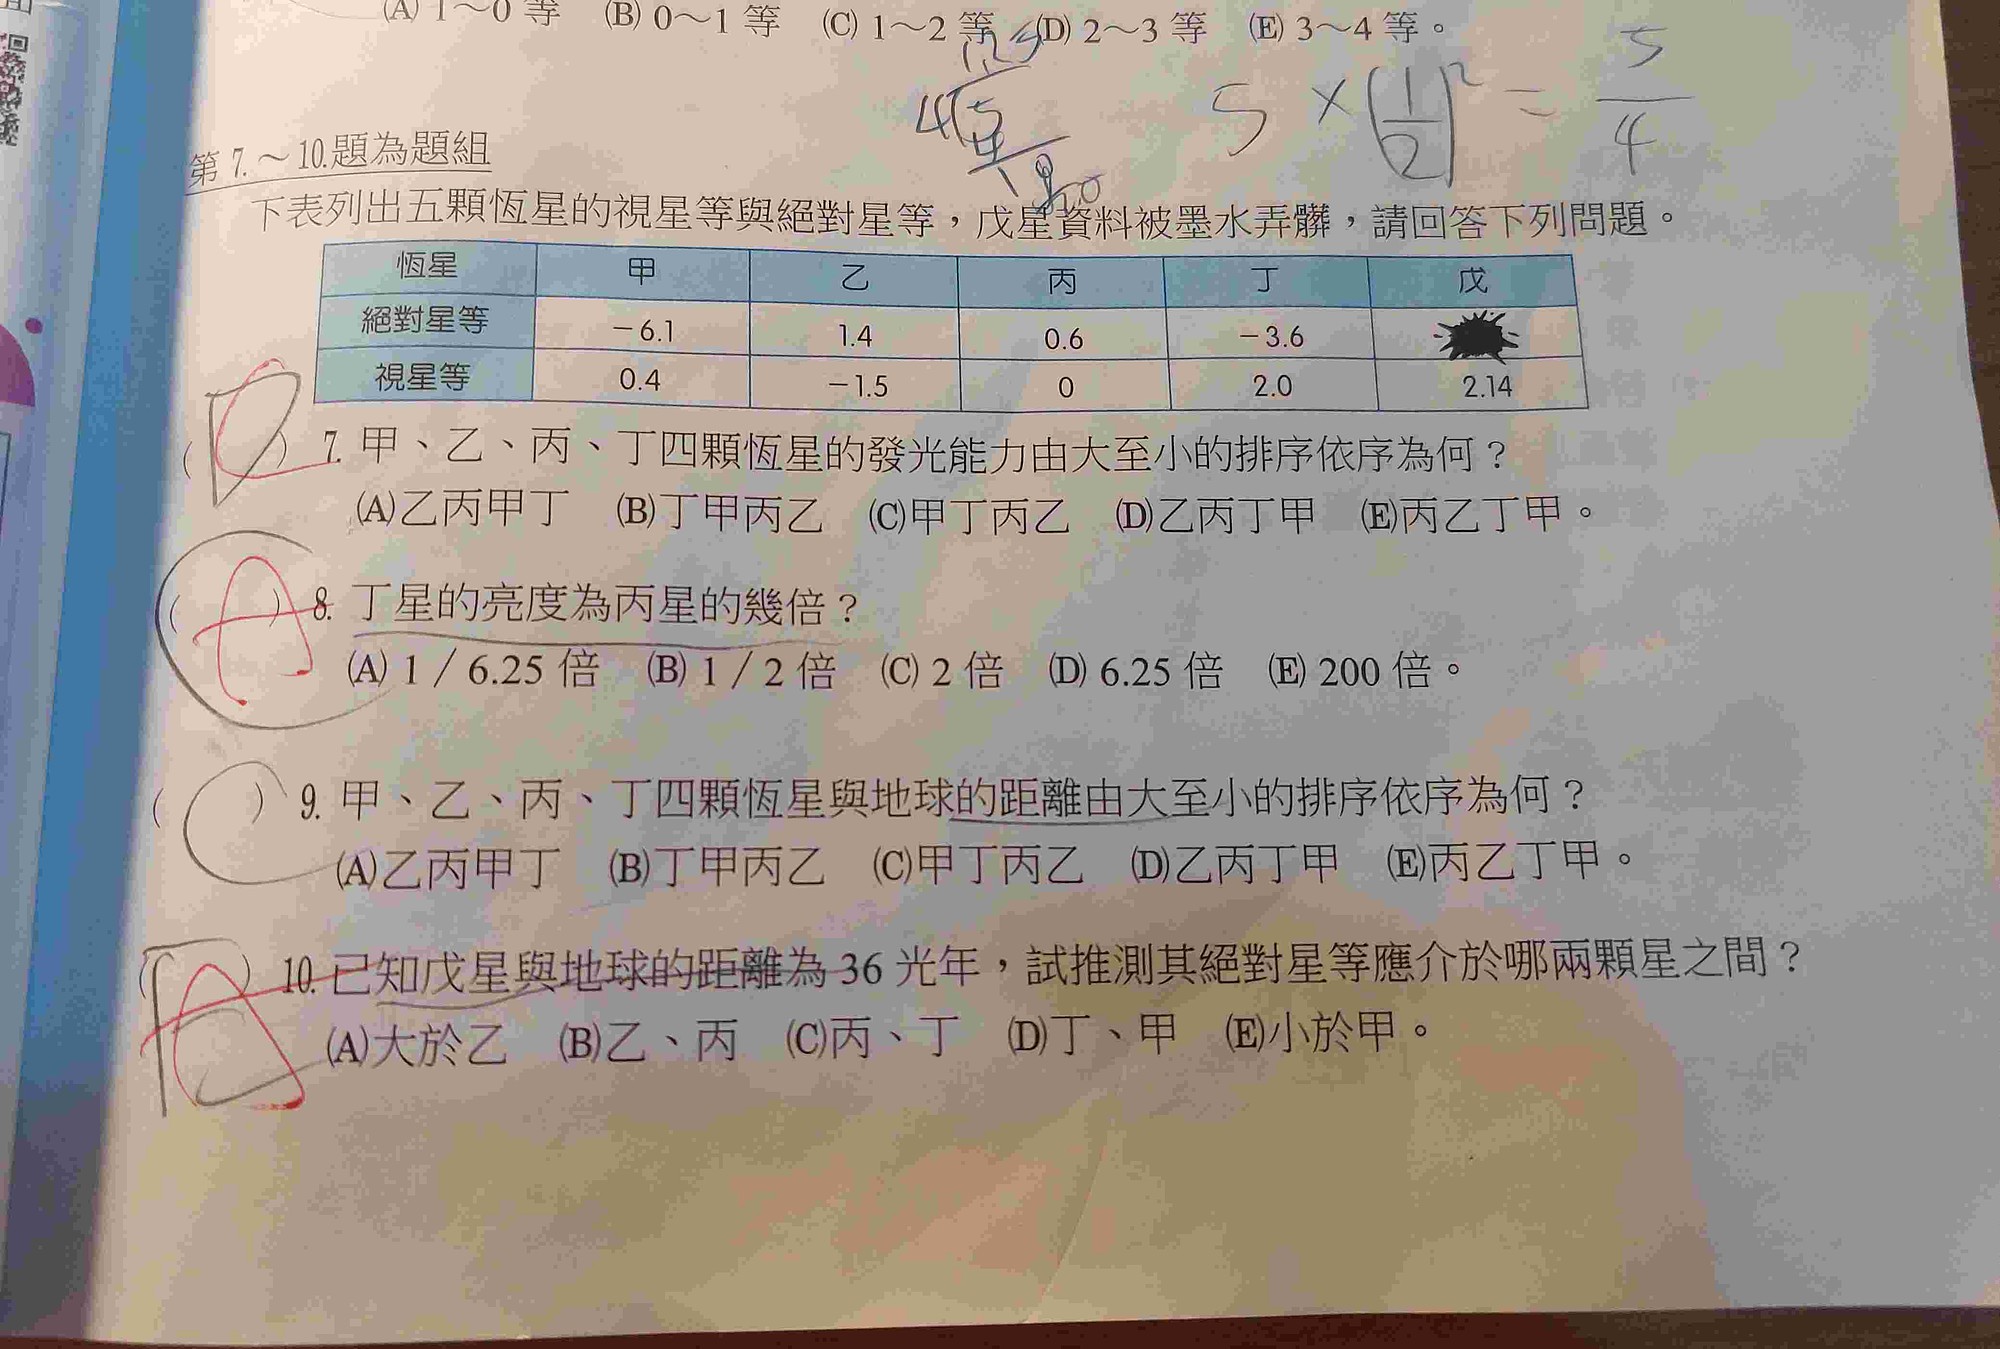 (A) 1～0 等 (B) 0～1 等 (C) 1～2 等 (D) 2～3 等 (E) 3～4 等。
5 × (1/2)² = 5/4
第 7.～10.題為題組
下表列出五顆恆星的視星等與絕對星等，戊星資料被墨水弄髒，請回答下列問題。
恆星 甲 乙 丙 丁 戊
絕對星等 －6.1 1.4 0.6 －3.6
視星等 0.4 －1.5 0 2.0 2.14
( C ) 7. 甲、乙、丙、丁四顆恆星的發光能力由大至小的排序依序為何？
(A)乙丙甲丁 (B)丁甲丙乙 (C)甲丁丙乙 (D)乙丙丁甲 (E)丙乙丁甲。
( A ) 8. 丁星的亮度為丙星的幾倍？
(A) 1／6.25 倍 (B) 1／2 倍 (C) 2 倍 (D) 6.25 倍 (E) 200 倍。
( C ) 9. 甲、乙、丙、丁四顆恆星與地球的距離由大至小的排序依序為何？
(A)乙丙甲丁 (B)丁甲丙乙 (C)甲丁丙乙 (D)乙丙丁甲 (E)丙乙丁甲。
( A ) 10. 已知戊星與地球的距離為 36 光年，試推測其絕對星等應介於哪兩顆星之間？
(A)大於乙 (B)乙、丙 (C)丙、丁 (D)丁、甲 (E)小於甲。